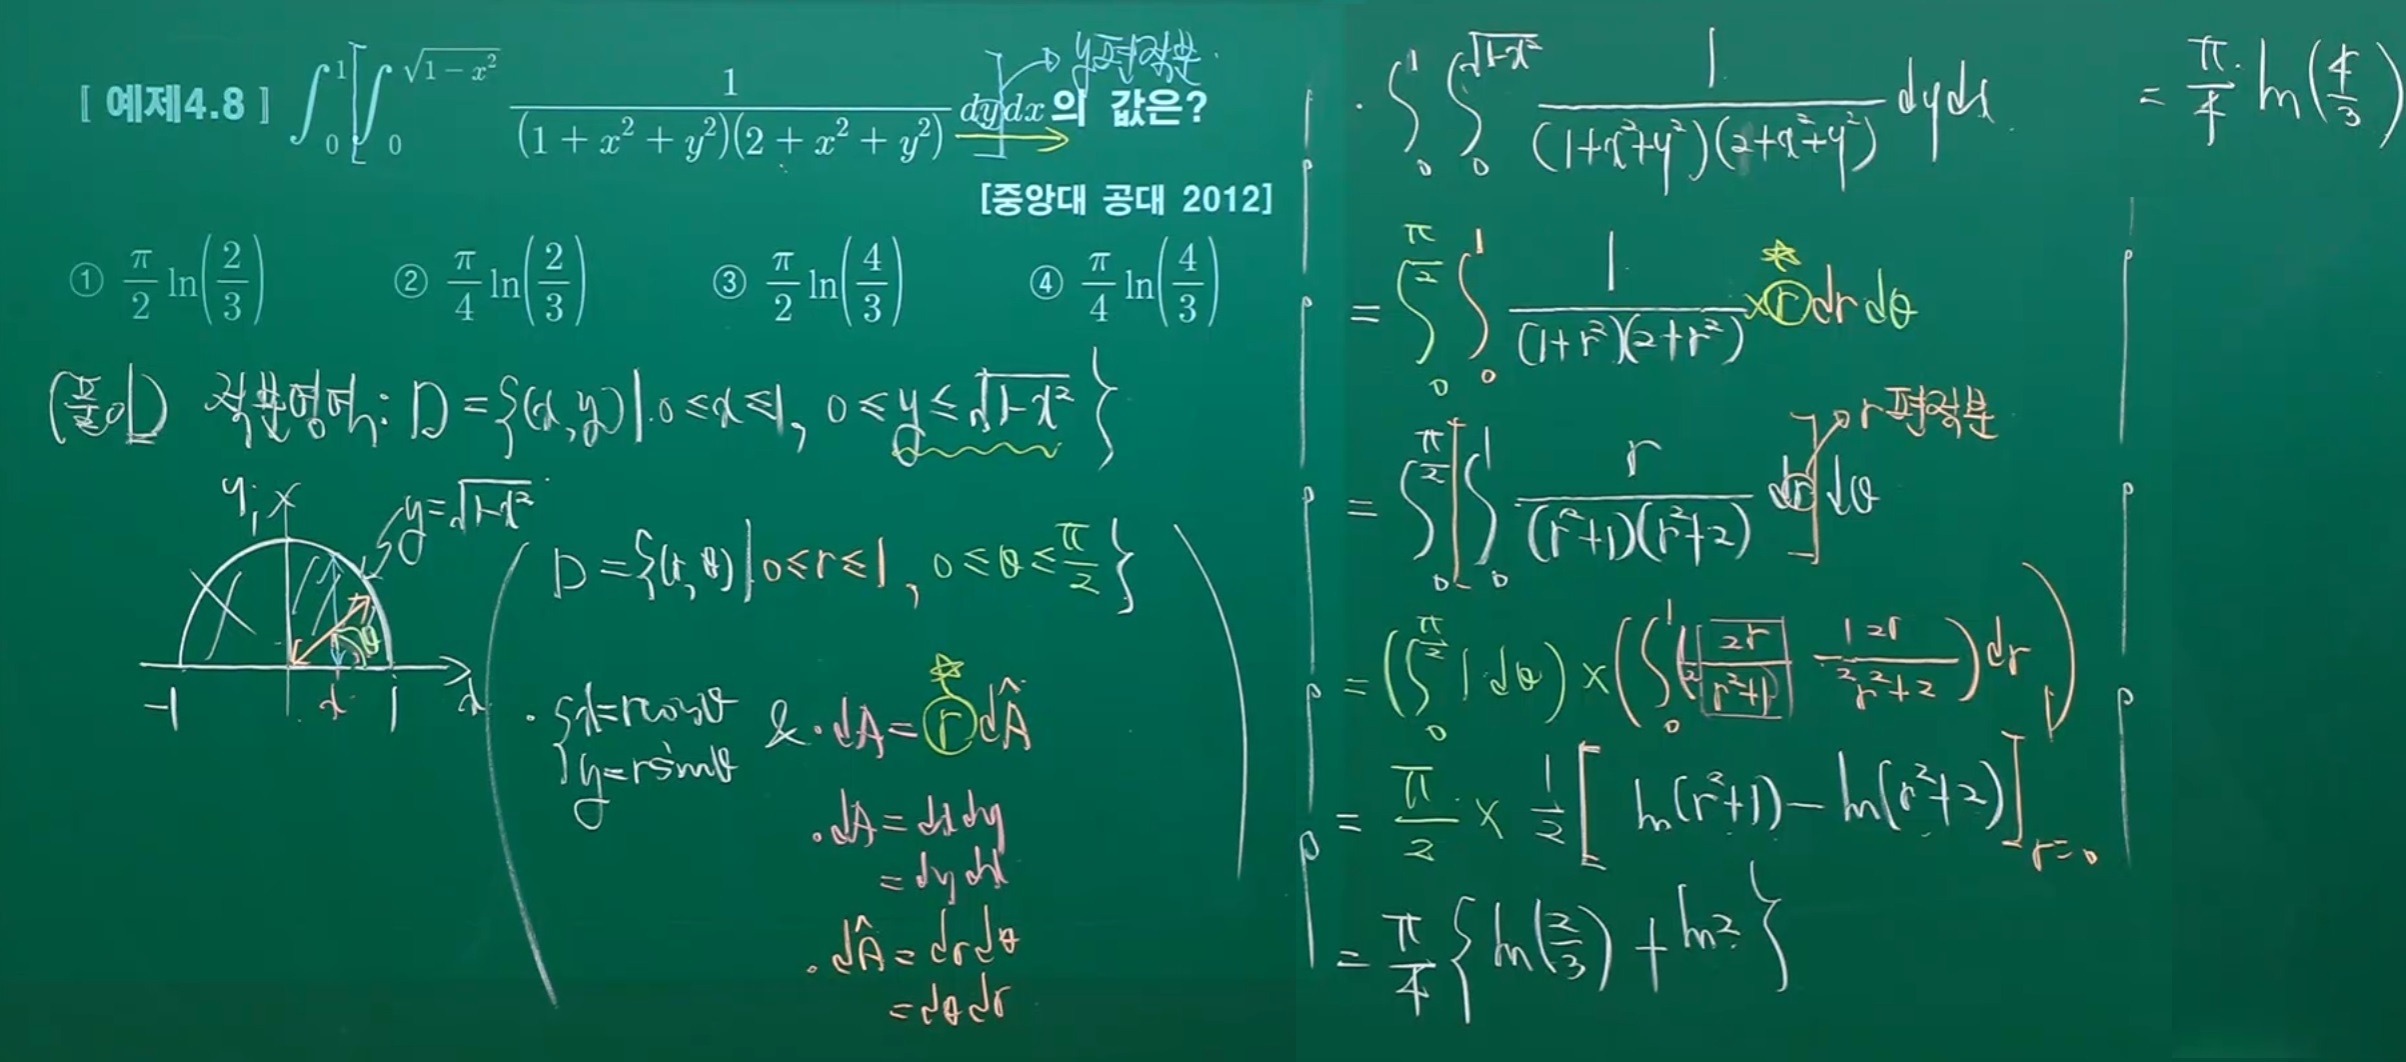 [ 예제4.8 ] ∫₀¹ [ ∫₀^√(1−x²) 1/((1+x²+y²)(2+x²+y²)) dy ] dx 의 값은? → y편적분
[중앙대 공대 2012]
① π/2 ln(2/3) ② π/4 ln(2/3) ③ π/2 ln(4/3) ④ π/4 ln(4/3)
(풀이) 적분영역: D = {(x,y) | 0≤x≤1, 0≤y≤√(1−x²)}
y
1
y=√(1−x²)
θ
-1 x 1 x
D = {(r,θ) | 0≤r≤1, 0≤θ≤π/2}
· { x=rcosθ
y=rsinθ & · dA = r dÂ
· dA = dxdy
= dydx
· dÂ = drdθ
= dθdr
· ∫₀¹ ∫₀^√(1−x²) 1/((1+x²+y²)(2+x²+y²)) dydx
= ∫₀^(π/2) ∫₀¹ 1/((1+r²)(2+r²)) × r dr dθ
= ∫₀^(π/2) [ ∫₀¹ r/((r²+1)(r²+2)) dr ] dθ → r편적분
= (∫₀^(π/2) 1 dθ) × (∫₀¹ (1/2 2r/(r²+1) − 1/2 2r/(r²+2)) dr)
= π/2 × 1/2 [ ln(r²+1) − ln(r²+2) ]_(r=0)^1
= π/4 { ln(2/3) + ln2 }
= π/4 ln(4/3)